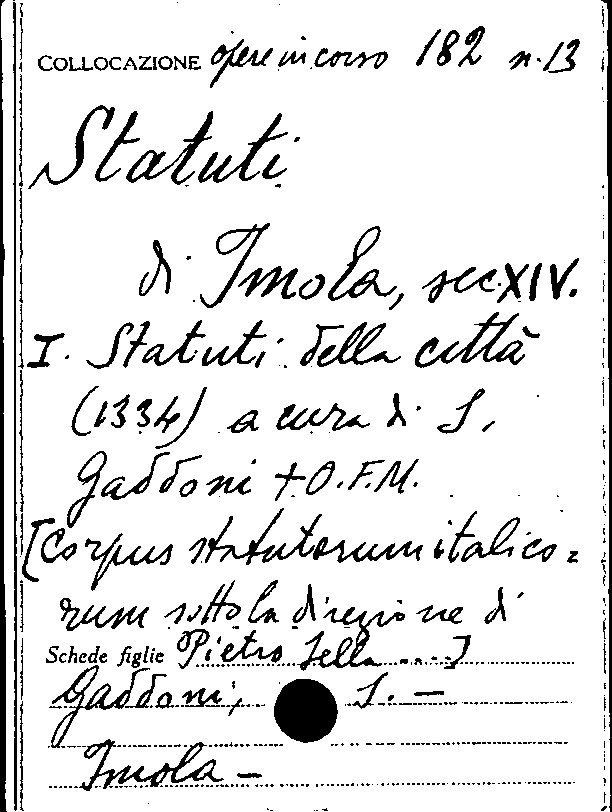 COLLOCAZIONE opere in corso 182 n. 13
Statuti
di Imola, sec. XIV.
I. Statuti della città
(1334) a cura di S.
Gaddoni + O.F.M.
[Corpus statutorum italico=
rum sotto la direzione di
Schede figlie Pietro Sella ....]
Gaddoni, S. —
Imola —